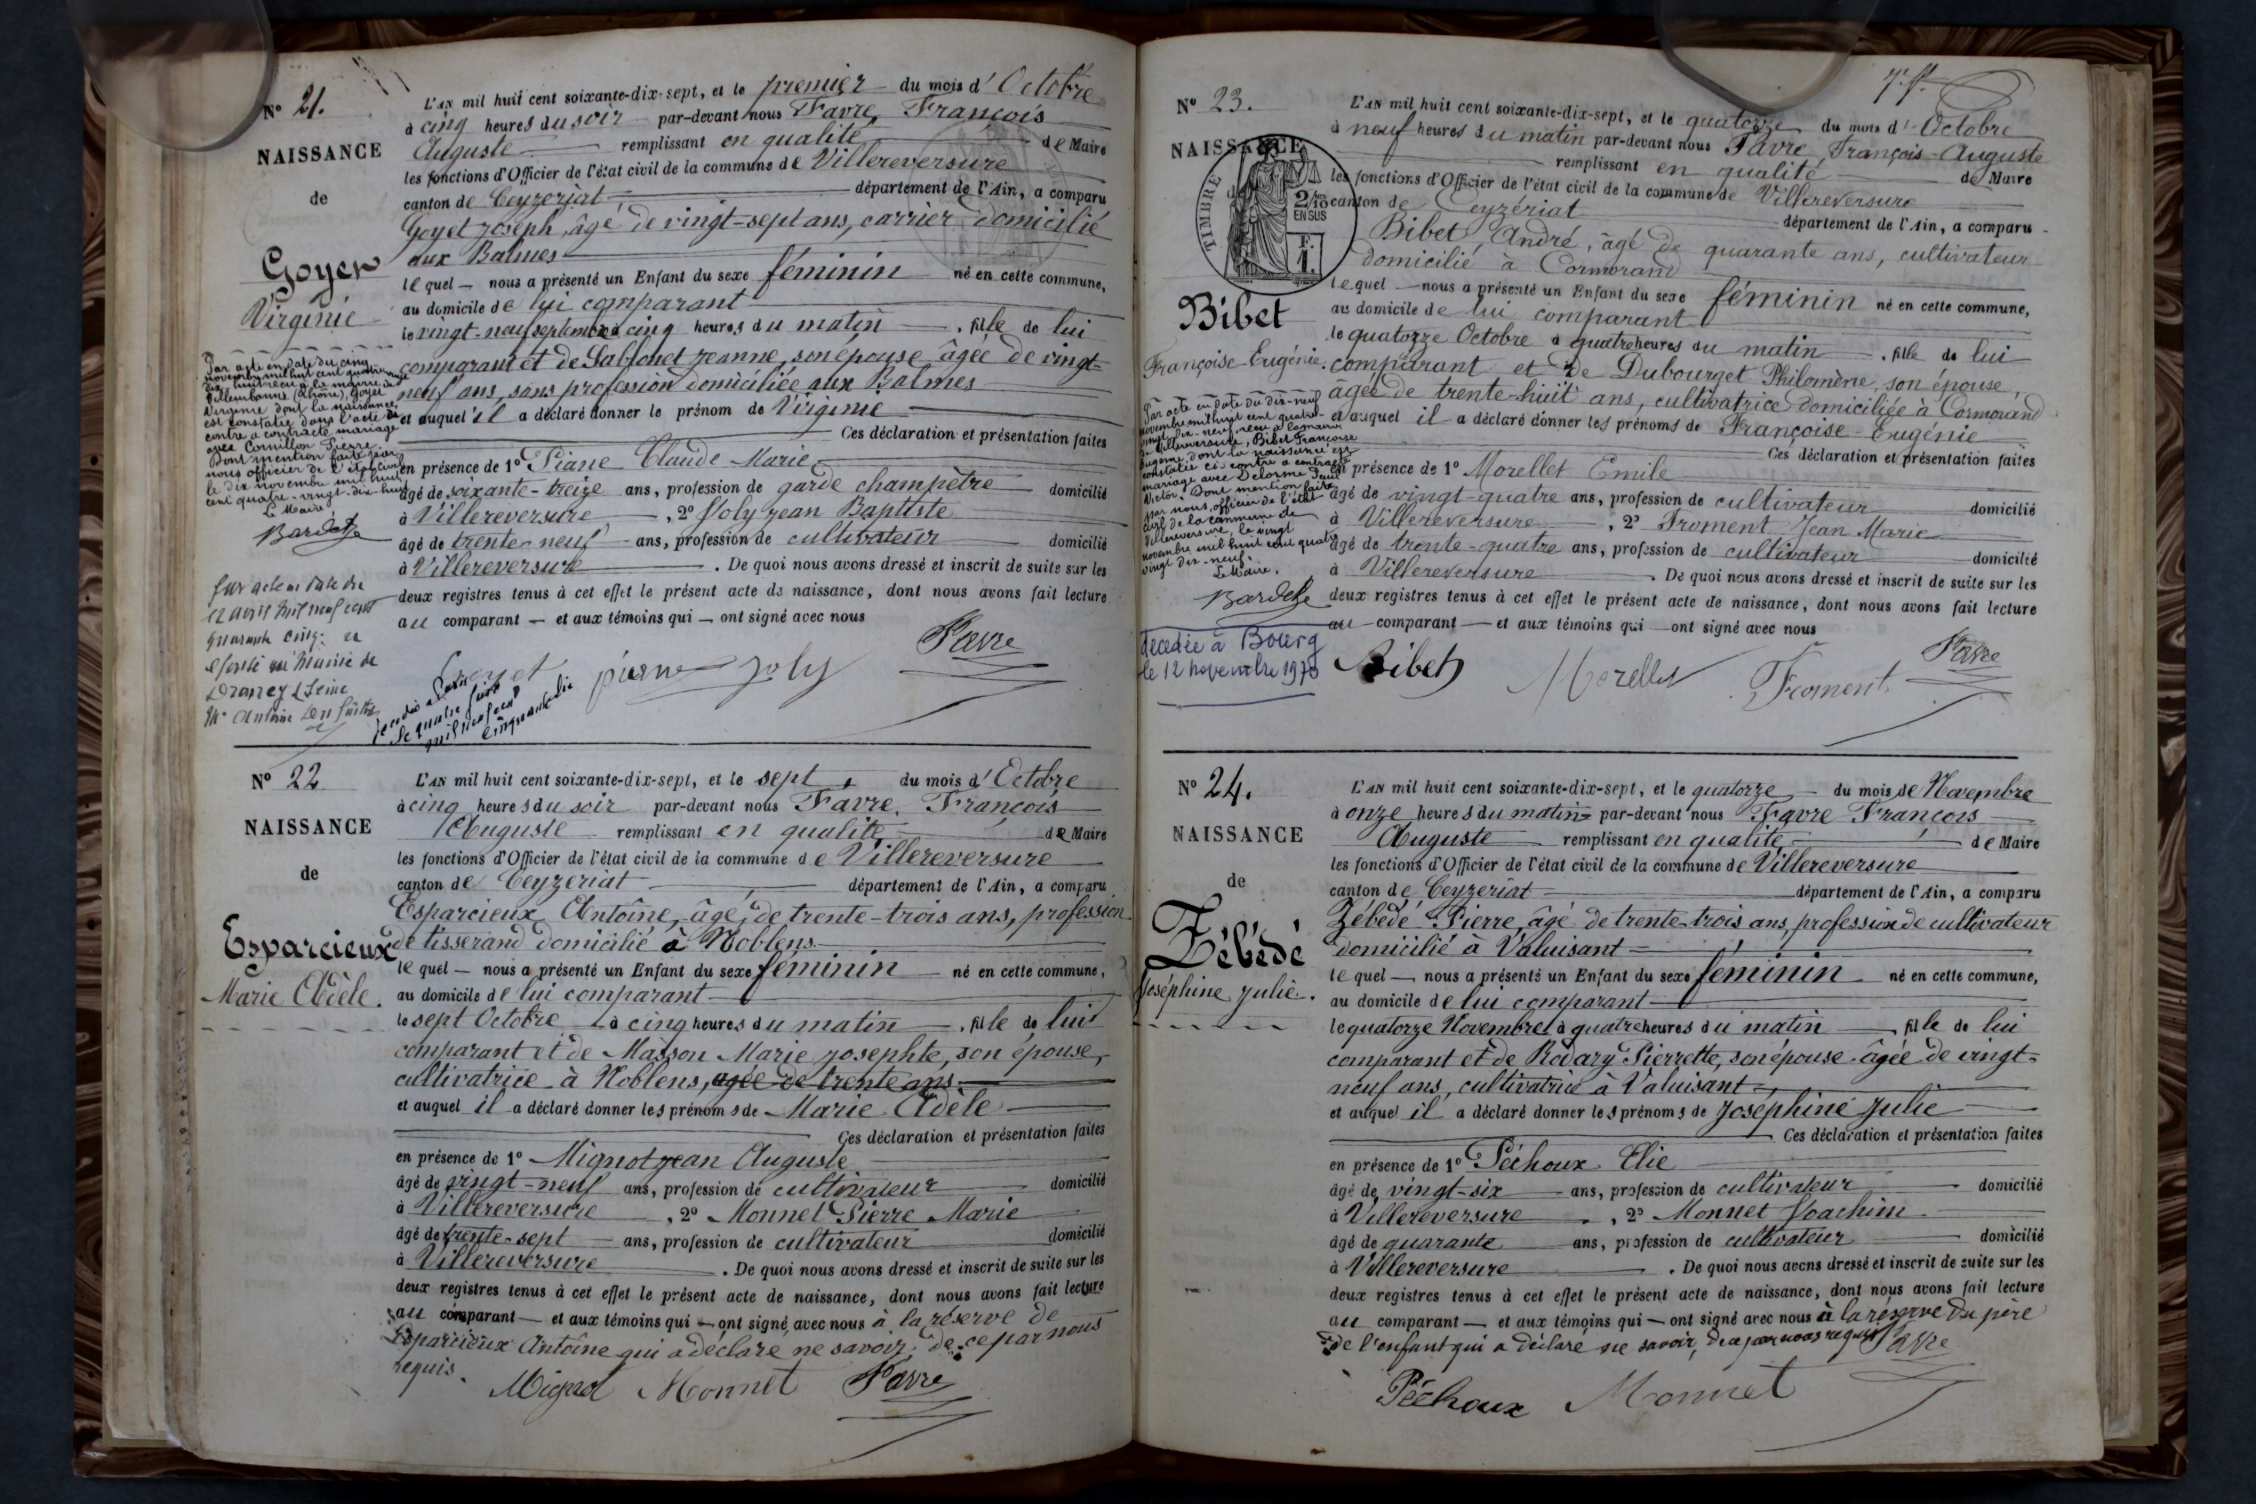 N° 21.
NAISSANCE
de
Goyet
Virginie
Par acte en date du cinq
novembre mil huit cent quatre-vingt
dix-huit reçu à la mairie de
Villeurbanne (Rhône), Goyet
Virginie dont la naissance
est constatée dans l'acte ci-
contre a contracté mariage
avec Cornillon Pierre.
Dont mention faite par
nous officier de l'état civil
le dix novembre mil huit
cent quatre-vingt-dix-huit
Le Maire
Bardet
Par acte en date du
12 avril mil neuf cent
quarante cinq
mairie de
Drancy Seine
L'AN mil huit cent soixante-dix-sept, et le premier du mois d'Octobre
à cinq heures du soir par-devant nous Favre, François
Auguste remplissant en qualité de Maire
les fonctions d'Officier de l'état civil de la commune de Villereversure
canton de Ceyzeriat département de l'Ain, a comparu
Goyet Joseph, âgé de vingt-sept ans, carrier domicilié
aux Balmes
lequel nous a présenté un Enfant du sexe féminin né en cette commune,
au domicile de lui comparant
le vingt-neuf septembre à cinq heures du matin, fille de lui
comparant et de Jeanne, son épouse âgée de vingt-
neuf ans, sans profession domiciliée aux Balmes
et auquel il a déclaré donner le prénom de Virginie
Ces déclaration et présentation faites
en présence de 1° Piane Claude Marie
âgé de soixante-treize ans, profession de garde champêtre domicilié
à Villereversure, 2° Joly Jean Baptiste
âgé de trente-neuf ans, profession de cultivateur domicilié
à Villereversure. De quoi nous avons dressé et inscrit de suite sur les
deux registres tenus à cet effet le présent acte de naissance, dont nous avons fait lecture
au comparant et aux témoins qui ont signé avec nous
Favre
Goyet piane Joly
N° 22
NAISSANCE
de
Esparcieux
Marie Adèle.
L'AN mil huit cent soixante-dix-sept, et le sept du mois d'Octobre
à cinq heures du soir par-devant nous Favre, François
Auguste remplissant en qualité de Maire
les fonctions d'Officier de l'état civil de la commune de Villereversure
canton de Ceyzeriat département de l'Ain, a comparu
Esparcieux Antoine, âgé de trente-trois ans, profession
de tisserand domicilié à Noblens
lequel nous a présenté un Enfant du sexe féminin né en cette commune,
au domicile de lui comparant
le sept Octobre à cinq heures du matin, fille de lui
comparant et de Masson Marie Josephte, son épouse,
cultivatrice à Noblens, agée de trente ans
et auquel il a déclaré donner les prénoms de Marie Adèle
Ces déclaration et présentation faites
en présence de 1° Mignot Jean Auguste
âgé de vingt-neuf ans, profession de cultivateur domicilié
à Villereversure, 2° Monnet Pierre Marie
âgé de trente-sept ans, profession de cultivateur domicilié
à Villereversure. De quoi nous avons dressé et inscrit de suite sur les
deux registres tenus à cet effet le présent acte de naissance, dont nous avons fait lecture
au comparant et aux témoins qui ont signé avec nous à la réserve de
Esparcieux Antoine qui a déclaré ne savoir, de ce par nous
requis.
Mignot Monnet Favre
N° 23.
NAISSANCE
TIMBRE
2/10
EN SUS
F.
1.
Bibet
Françoise-Eugénie.
Par acte en date du dix-neuf
novembre mil huit cent quatre-
vingt-dix-neuf, reçu à la mairie
de Villereversure, Bibet Françoise
Eugénie, dont la naissance est
constatée ci-contre a contracté
mariage avec Delorme Paul
Victor. Dont mention faite
par nous, officier de l'état
civil de la commune de
Villereversure, le vingt
novembre mil huit cent quatre
vingt dix-neuf.
Le Maire.
Bardet
décédée à Bourg
le 12 novembre 1970
L'AN mil huit cent soixante-dix-sept, et le quatorze du mois d'Octobre
à neuf heures du matin par-devant nous Favre, François-Auguste
remplissant en qualité de Maire
les fonctions d'Officier de l'état civil de la commune de Villereversure
canton de Ceyzériat département de l'Ain, a comparu
Bibet, André, âgé de quarante ans, cultivateur
domicilié à Cormorand
lequel nous a présenté un Enfant du sexe féminin né en cette commune,
au domicile de lui comparant
le quatorze Octobre à quatre heures du matin, fille de lui
comparant et de Dubourget Philomène, son épouse,
âgée de trente-huit ans, cultivatrice domiciliée à Cormorand
et auquel il a déclaré donner les prénoms de Françoise-Eugénie
Ces déclaration et présentation faites
en présence de 1° Morellet Emile
âgé de vingt-quatre ans, profession de cultivateur domicilié
à Villereversure, 2° Froment Jean Marie
âgé de trente-quatre ans, profession de cultivateur domicilié
à Villereversure. De quoi nous avons dressé et inscrit de suite sur les
deux registres tenus à cet effet le présent acte de naissance, dont nous avons fait lecture
au comparant et aux témoins qui ont signé avec nous
Bibet Morellet Froment Favre
N° 24.
NAISSANCE
de
Zébédé
Joséphine Julie.
L'AN mil huit cent soixante-dix-sept, et le quatorze du mois de Novembre
à onze heures du matin par-devant nous Favre François
Auguste remplissant en qualité de Maire
les fonctions d'Officier de l'état civil de la commune de Villereversure
canton de Ceyzeriat département de l'Ain, a comparu
Zébédé Pierre, âgé de trente-trois ans, profession de cultivateur
domicilié à Valuisant
lequel nous a présenté un Enfant du sexe féminin né en cette commune,
au domicile de lui comparant
le quatorze Novembre à quatre heures du matin, fille de lui
comparant et de Rodary Pierrette, son épouse âgée de vingt-
neuf ans, cultivatrice à Valuisant
et auquel il a déclaré donner les prénoms de Joséphine Julie
Ces déclaration et présentation faites
en présence de 1° Péchoux Elie
âgé de vingt-six ans, profession de cultivateur domicilié
à Villereversure, 2° Monnet Joachim
âgé de quarante ans, profession de cultivateur domicilié
à Villereversure. De quoi nous avons dressé et inscrit de suite sur les
deux registres tenus à cet effet le présent acte de naissance, dont nous avons fait lecture
au comparant et aux témoins qui ont signé avec nous à la réserve du père
de l'enfant qui a déclaré ne savoir, de ce par nous requis Favre
Péchoux Monnet